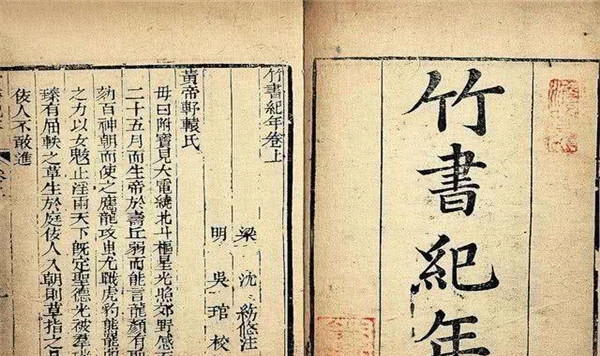 竹書紀年
竹書紀年卷上
梁沈約附注
明吳琯校
黃帝軒轅氏
母曰附寶見大電繞北斗樞星光照郊野感
二十五月而生帝於壽丘弱而能言龍顏有聖
劾百神朝而使之應龍攻蚩尤戰虎豹熊羆
之力以女魃止淫雨天下既定聖德光被羣瑞
臻有屈軼之草生於庭佞人入朝則草指之是
佞人不敢進